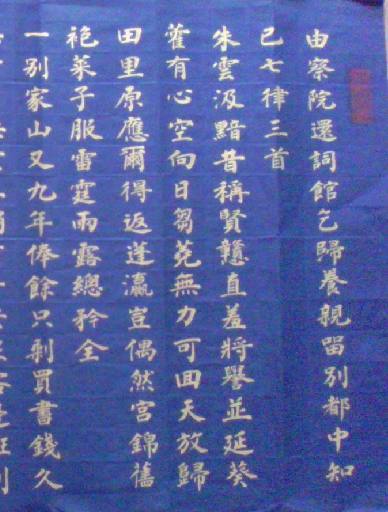 由察院還詞館乞歸養親畱別都中知
己七律三首
朱雲汲黯昔稱賢戇直羞將譽並延葵
藿有心空向日芻蕘無力可回天放歸
田里原應爾得返蓬瀛豈偶然宮錦舊
袍萊子服雷霆雨露總矜全
一別家山又九年俸餘只剩買書錢久